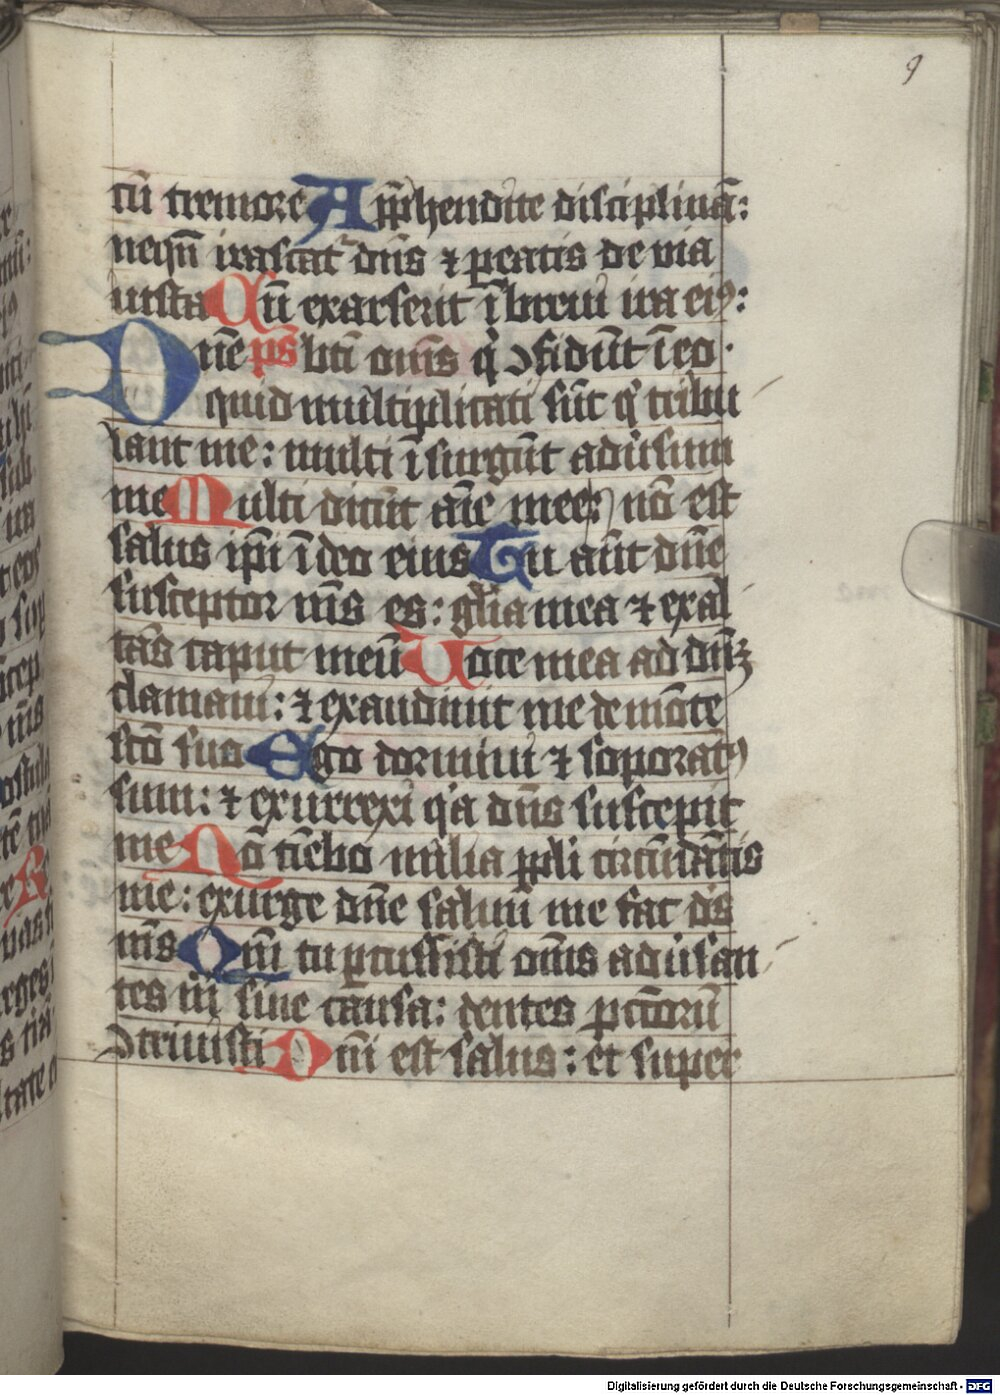 9
cū tremore App̄hendite disciplinā:
nequn̄ irascat͛ dn̄s ⁊ ꝑeatis de via
iusta Cū exarserit ī breui ira eiꝰ:
Dn̄e p̄s bt̄i om̄s q̇ ↄfidūt ī eo.
quid mĺtiplicati sūt q͛ tribu
lant me: multi īsurgūt aduͥsum
me Multi dicūt aīe mee: nō est
salus ip̄i ī deo eius Tu aūt dn̄e
susceptor m̄s es: gl̄ia mea ⁊ exal
tās caput meū Uoce mea ad dn̄ꝫ
clamaui: ⁊ exaudiuit me de mōte
sc̄o suo Ego dormiui ⁊ soporatꝰ
sum: ⁊ exurrexi qͥa dn̄s suscepit
me Nō tīebo milia ppl̄i circūdātis
me: exurge dn̄e saluū me fac ds̄
m̄s Qm̄ tu ꝑcussisti om̄s aduͥsan
tes m̄ sine causa: dentes pctōrū
ↄtriuisti Dn̄i est salus: et super
Digitalisierung gefördert durch die Deutsche Forschungsgemeinschaft - DFG